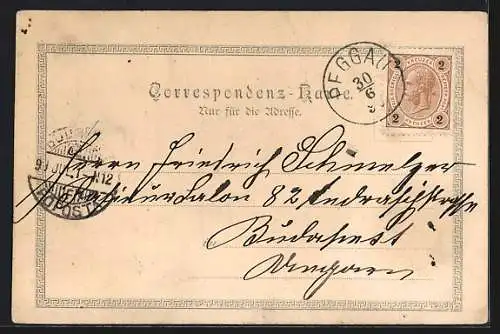 Correspondenz-Karte.
Nur für die Adresse.
PEGGAU
30
6
2 KREUZER 2
2 2
Herrn Friedrich Schmelzer
Salon 82 Andrassystrasse
Budapest
Ungarn